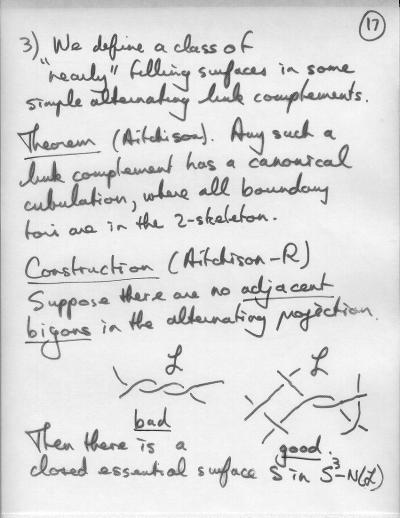 17
3) We define a class of
"nearly" filling surfaces in some
simple alternating link complements.
Theorem (Aitchison). Any such a
link complement has a canonical
cubulation, where all boundary
tori are in the 2-skeleton.
Construction (Aitchison-R)
Suppose there are no adjacent
bigons in the alternating projection.
L L
bad good.
Then there is a
closed essential surface S in S³-N(L)